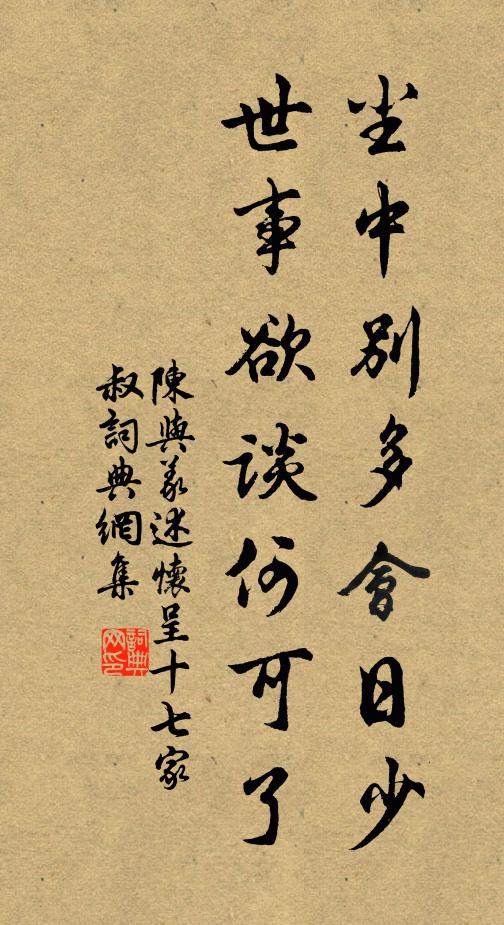 坐中別多會日少
世事欲談何可了
陳與義述懷呈十七家
叔詞典網集
詞典網印